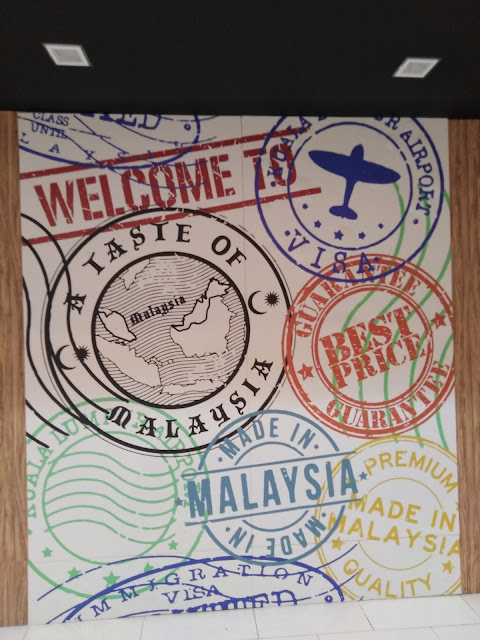 CLASS
UNTIL
WELCOME TO
AIRPORT
VISA
A TASTE OF
Malaysia
MALAYSIA
GUARANTEE
BEST
PRICE
GUARANTEE
KUALA LUMPUR
MADE IN
MALAYSIA
MADE IN
PREMIUM
MADE IN
MALAYSIA
QUALITY
IMMIGRATION
VISA